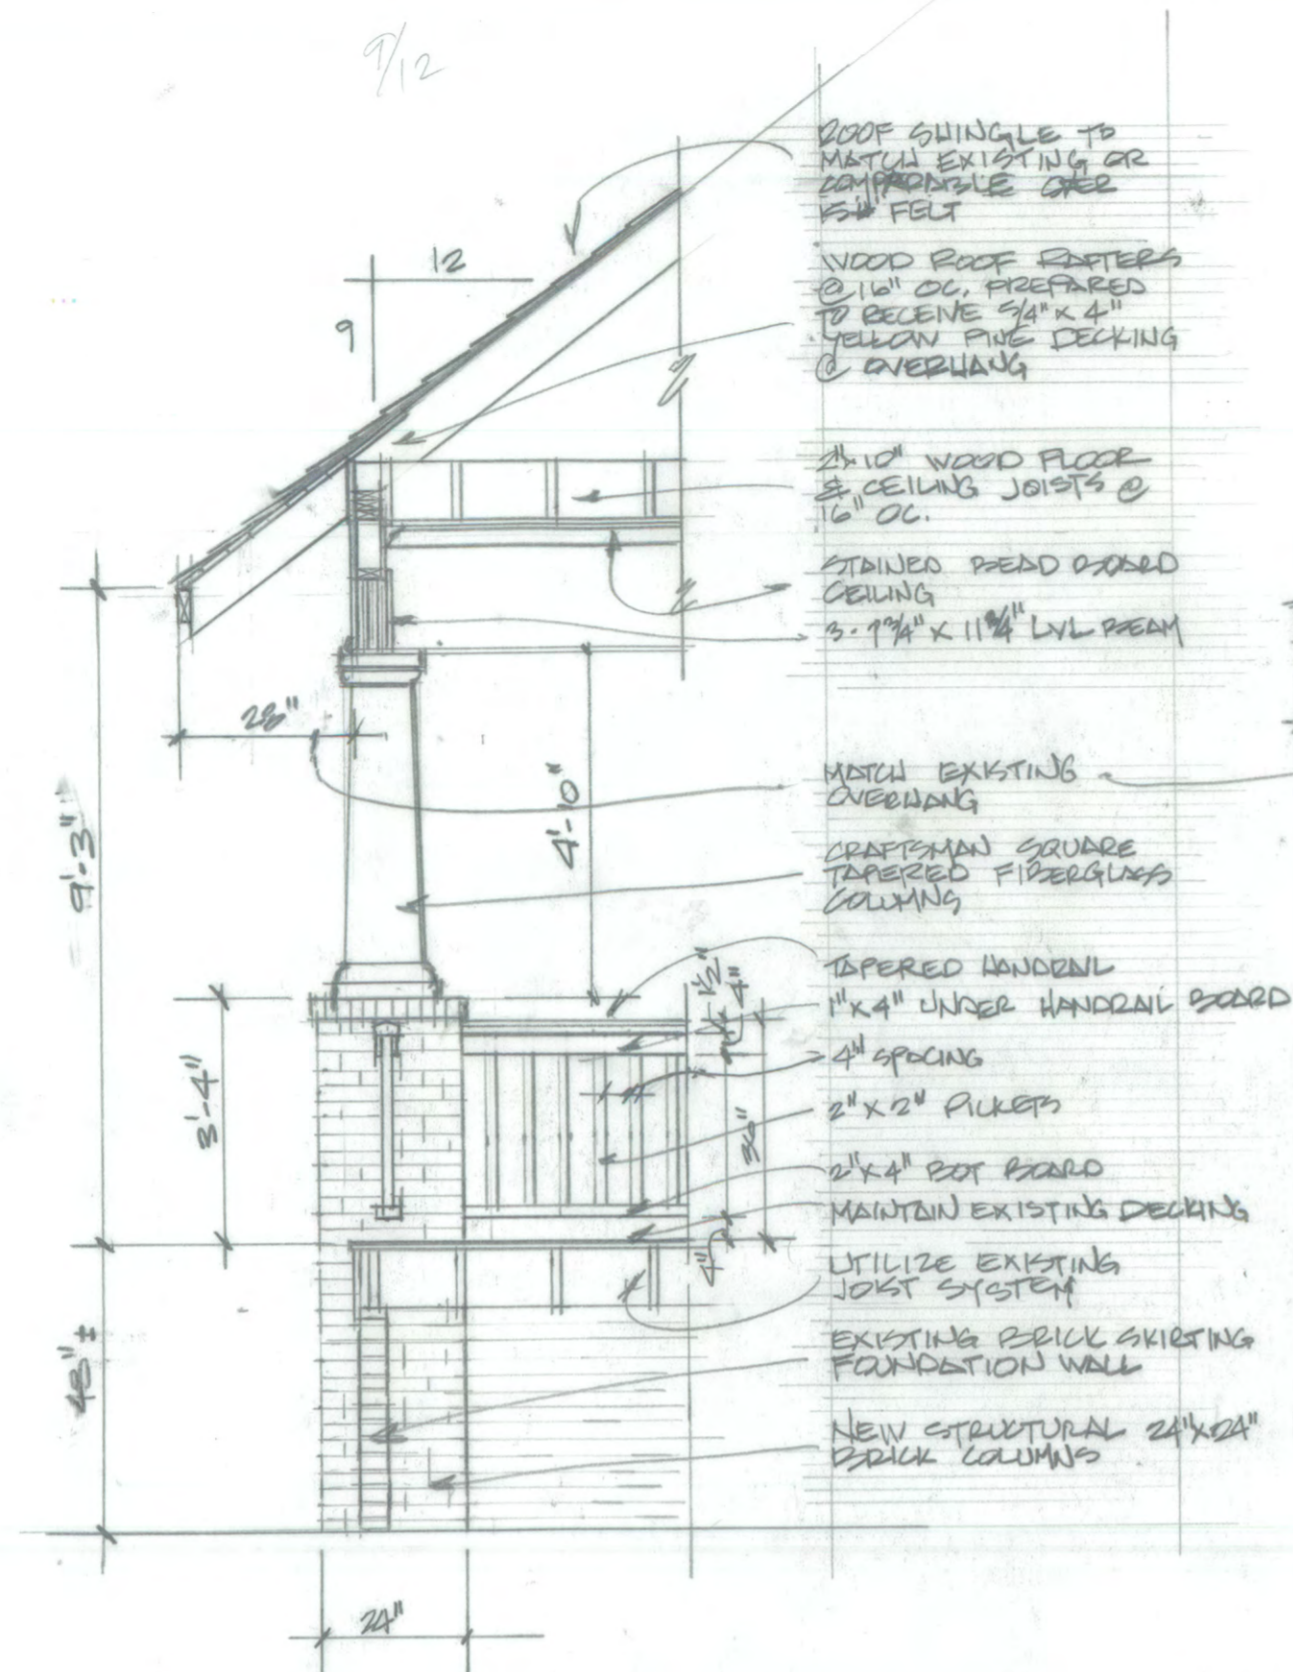 9/12
ROOF SHINGLE TO
MATCH EXISTING OR
COMPARABLE OVER
15# FELT
12
9
WOOD ROOF RAFTERS
@ 16" OC. PREPARED
TO RECEIVE 5/4" X 4"
YELLOW PINE DECKING
@ OVERHANG
2"x10" WOOD FLOOR
& CEILING JOISTS @
16" OC.
STAINED BEAD BOARD
CEILING
3-1 3/4" X 11 3/4" LVL BEAM
28"
MATCH EXISTING
OVERHANG
4'-10"
9'-3"
CRAFTSMAN SQUARE
TAPERED FIBERGLASS
COLUMNS
TAPERED HANDRAIL
1"X4" UNDER HANDRAIL BOARD
1 1/2"
4"
4" SPACING
2"X2" PICKETS
3'-4"
36"
2"X4" BOT BOARD
MAINTAIN EXISTING DECKING
4"
UTILIZE EXISTING
JOIST SYSTEM
48" ±
EXISTING BRICK SKIRTING
FOUNDATION WALL
NEW STRUCTURAL 24"X24"
BRICK COLUMNS
24"